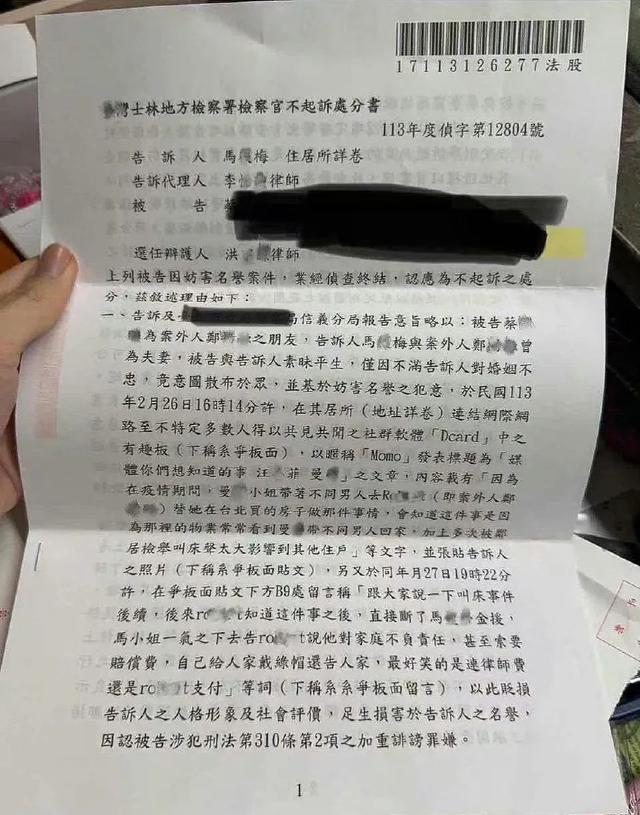 17113126277法股
灣士林地方檢察署檢察官不起訴處分書
113年度偵字第12804號
告訴人 馬 梅 住居所詳卷
告訴代理人 李 律師
被 告
選任辯護人 洪 律師
上列被告因妨害名譽案件，業經偵查終結，認應為不起訴之處
分，茲敘述理由如下：
一、告訴及 信義分局報告意旨略以：被告蔡
為案外人鄭 之朋友，告訴人馬 梅與案外人鄭 曾
為夫妻，被告與告訴人素昧平生，僅因不滿告訴人對婚姻不
忠，竟意圖散布於眾，並基於妨害名譽之犯意，於民國113
年2月26日16時14分許，在其居所（地址詳卷）連結網際網
路至不特定多數人得以共見共聞之社群軟體「Dcard」中之
有趣板（下稱系爭板面），以暱稱「Momo」發表標題為「媒
體你們想知道的事 汪 菲 曼 」之文章，內容載有「因為
在疫情期間，曼 小姐帶著不同男人去Ro （即案外人鄭
）替她在台北買的房子做那件事情，會知道這件事是因
為那裡的物業常常看到曼 帶不同男人回家，加上多次被鄰
居檢舉叫床聲太大影響到其他住戶」等文字，並張貼告訴人
之照片（下稱系爭板面貼文），另又於同年月27日19時22分
許，在爭板面貼文下方B9處留言稱「跟大家說一下叫床事件
後續，後來ro t知道這件事之後，直接斷了馬 金援，
馬小姐一氣之下去告ro t說他對家庭不負責任，甚至索要
賠償費，自己給人家戴綠帽還告人家，最好笑的是連律師費
還是ro t支付」等詞（下稱系系爭板面留言），以此貶損
告訴人之人格形象及社會評價，足生損害於告訴人之名譽，
因認被告涉犯刑法第310條第2項之加重誹謗罪嫌。
1